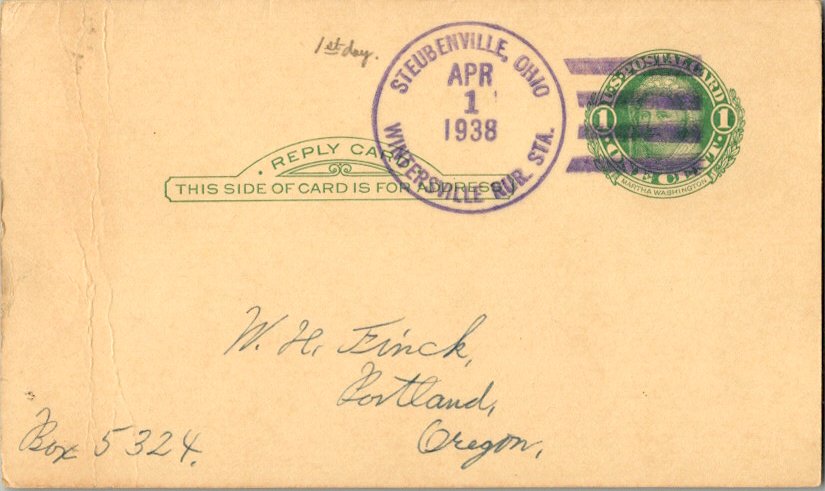 1st day.
STEUBENVILLE, OHIO
APR
1
1938
WINTERSVILLE RUR. STA.
U.S. POSTAL CARD
1 1
ONE CENT
MARTHA WASHINGTON
REPLY CARD
THIS SIDE OF CARD IS FOR ADDRESS
W. H. Finck,
Portland,
Oregon,
Box 5324.